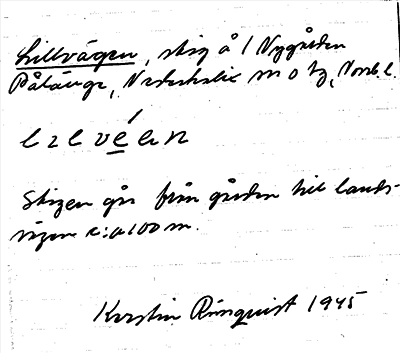 Lillvägen, stig å 1 Nygården
Påläng, Nederkalix sn o tg, Norrb. l.
Stigen går från gården till lands-
vägen c:a 100 m.
Kerstin Rönquist 1945